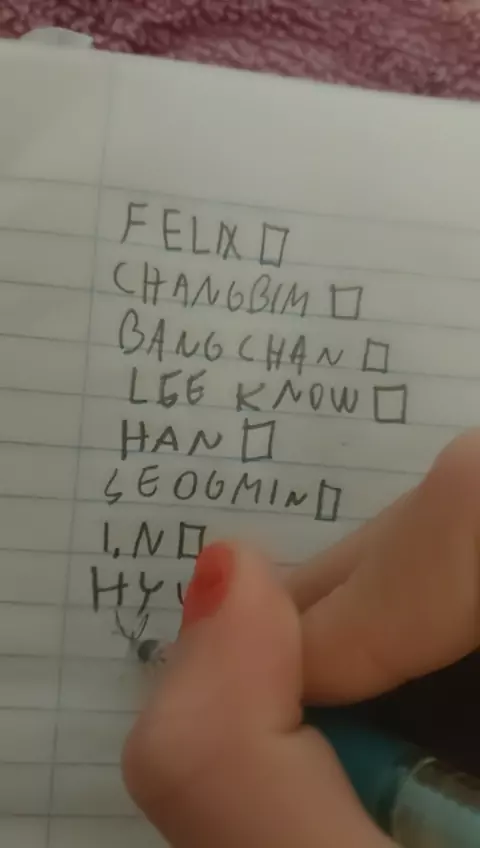 FELIX
CHANGBIM
BANGCHAN
LEE KNOW
HAN
SEOGMIN
I.N